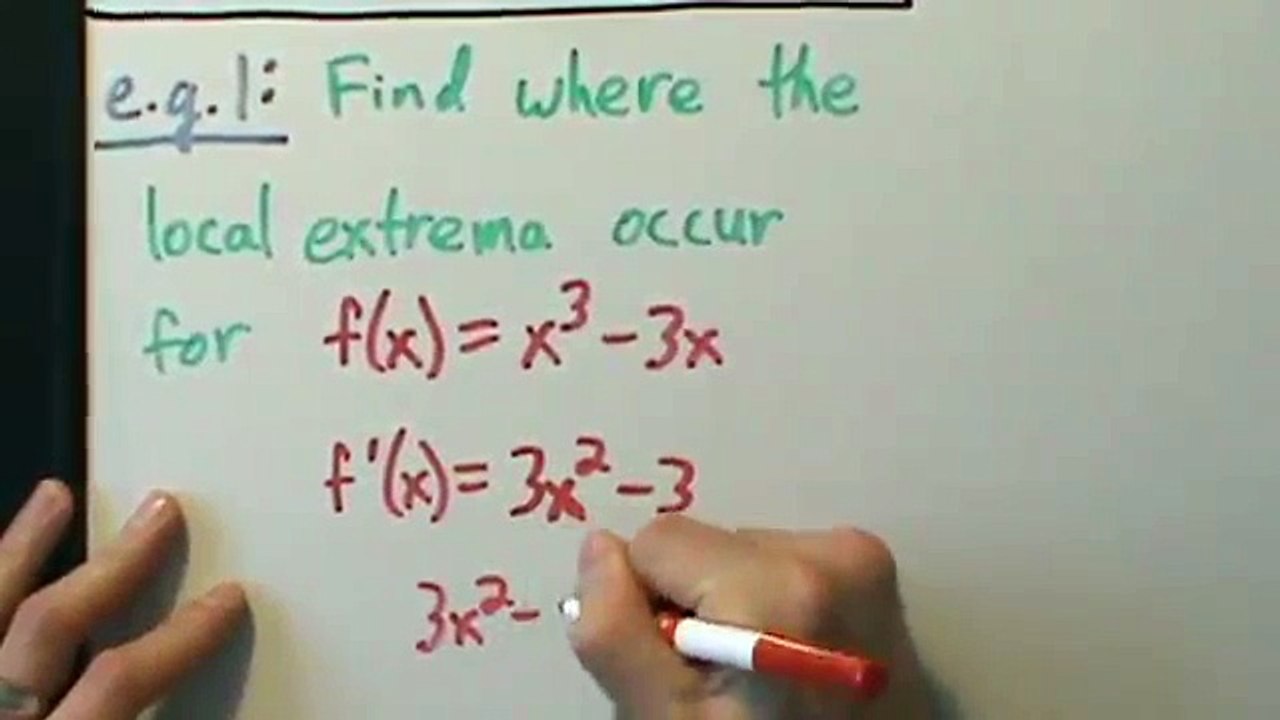 e.g.1: Find where the
local extrema occur
for f(x) = x³ - 3x
f'(x) = 3x² - 3
3x² -